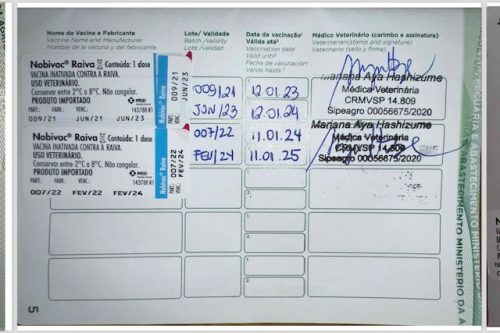 Nome da Vacina e Fabricante
Vaccine Name and Manufacturer
Nombre de la vacuna y del fabricante
Lote/ Validade
Batch /validity
Lote /validità
Data da vacinação/
Válida até/
Vaccination date/
Valid until/
Fecha de vacunación/
Válida hasta
Médico Veterinário (carimbo e assinatura)
Veterinarian(stamp and signature)
Veterinario (sello y firma)
Nobivac® Raiva
Conteúdo: 1 dose
VACINA INATIVADA CONTRA A RAIVA.
USO VETERINÁRIO.
Conservar entre 2°C e 8°C. Não congelar.
PRODUTO IMPORTADO
MSD
PART.: FABR.: VENC.:
009/21 JUN/21 JUN/23
Nobivac® Raiva
009/21
JUN/23
009/21
JUN/23
12.01.23
12.01.24
Mariana Aya Hashizume
Médica Veterinária
CRMVSP 14.809
Sipeagro 00056675/2020
Nobivac® Raiva
Conteúdo: 1 dose
VACINA INATIVADA CONTRA A RAIVA.
USO VETERINÁRIO.
Conservar entre 2°C e 8°C. Não congelar.
PRODUTO IMPORTADO
MSD
143788 R1
PART.: FABR.: VENC.:
007/22 FEV/22 FEV/24
Nobivac® Raiva
007/22
FEV/24
007/22
FEV/24
11.01.24
11.01.25
Mariana Aya Hashizume
Médica Veterinária
CRMVSP 14.809
Sipeagro 00056675/2020
5
ABASTECIMENTO MINISTÉRIO DA A